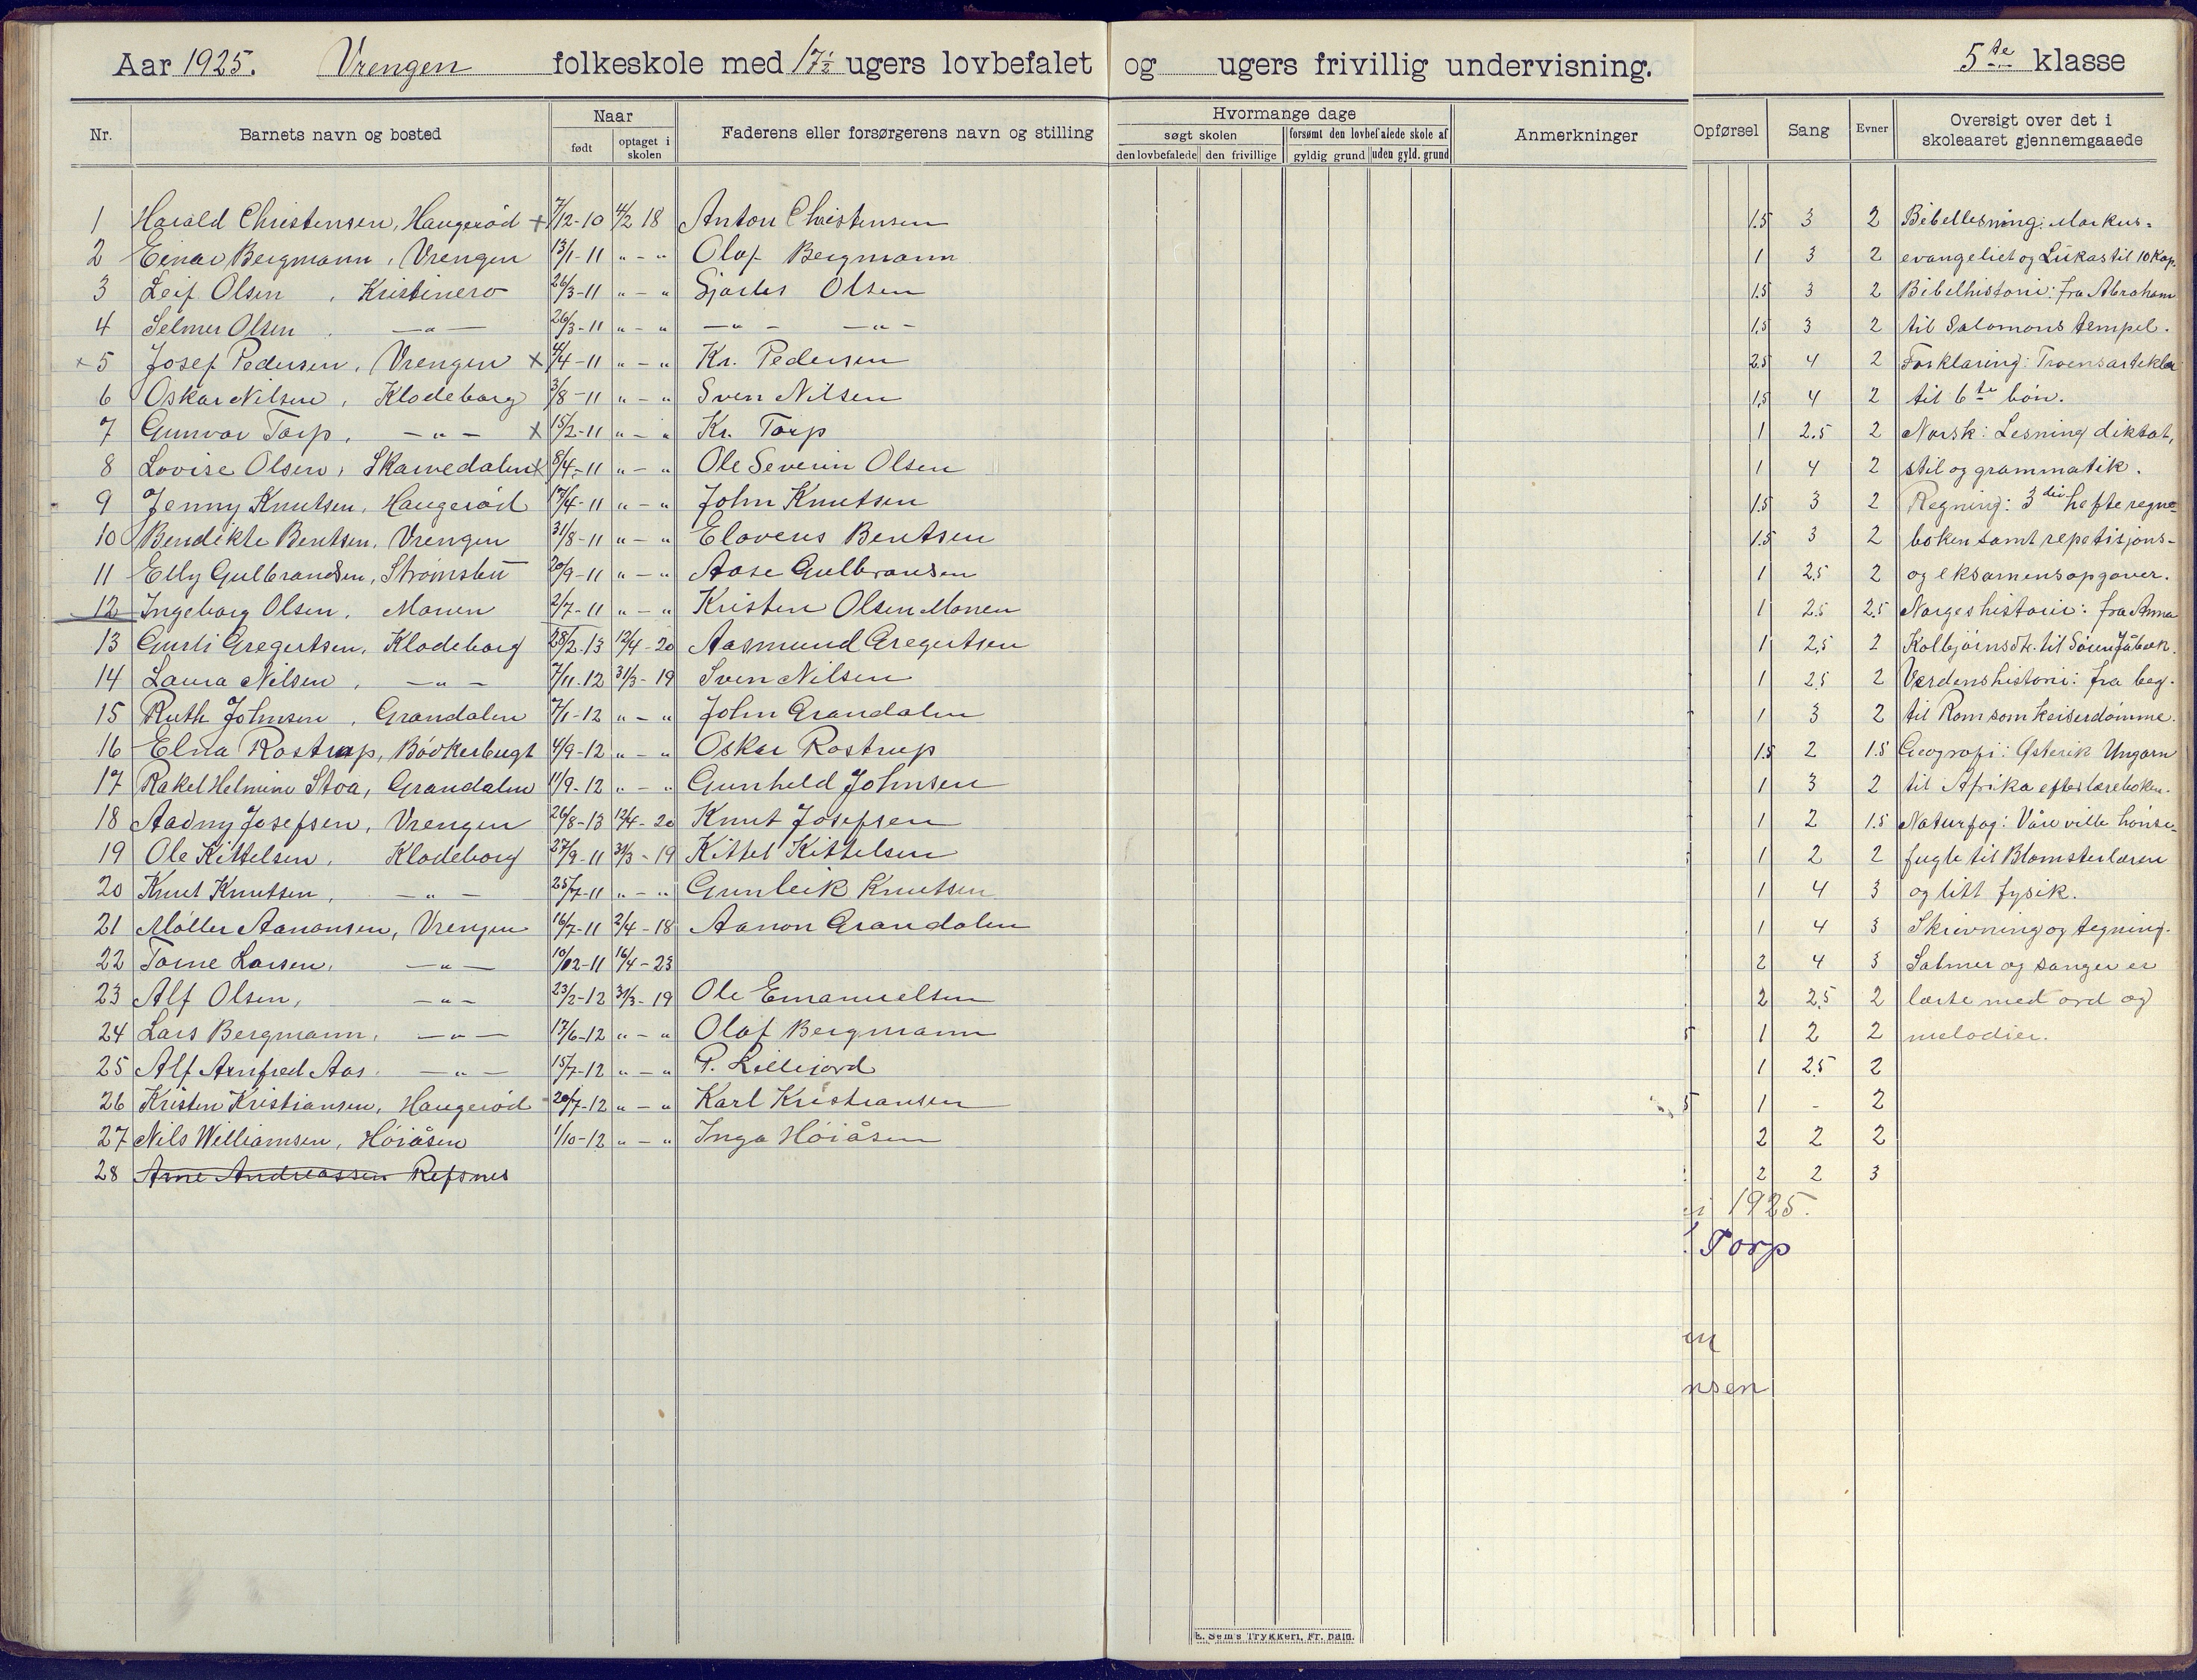 Aar 1925. Vrengen folkeskole med 17½ ugers lovbefalet og ugers frivillig undervisning. 5te klasse
Nr. Barnets navn og bosted Naar Faderens eller forsørgerens navn og stilling Hvormange dage Anmerkninger Opførsel Sang Evner Oversigt over det i skoleaaret gjennemgaaede
født optaget i skolen søgt skolen forsømt den lovbefalede skole af
den lovbefalede den frivillige gyldig grund uden gyld. grund
1 Harald Christensen, Haugerød + 7/12-10 4/2 18 Anton Christensen 1.5 3 2 Bibellesning: Markus-
2 Einar Bergmann, Vrengen 13/1-11 " - " Olaf Bergmann 1 3 2 evangeliet og Lukas til 10 kap.
3 Leif Olsen, Kristinero 26/3-11 " - " Sjarles Olsen 1.5 3 2 Bibelhistorie: fra Abraham
4 Selmer Olsen - " - 26/3-11 " - " - " - - " - 1.5 3 2 til Salomons tempel.
x 5 Josef Pedersen, Vrengen x 4/4-11 " - " Kr. Pedersen 2.5 4 2 Forklaring: Troensartekler
6 Oskar Nilsen, Klodeborg 3/8-11 " - " Sven Nilsen 1,5 4 2 til 6te bön.
7 Gunvor Torp, - " - x 15/2-11 " - " Kr. Torp 1 2.5 2 Norsk: Lesning diktat,
8 Lovise Olsen, Skarvedalen x 8/4-11 " - " Ole Severin Olsen 1 4 2 stil og grammatik.
9 Jenny Knutsen, Haugeröd 17/4-11 " - " John Knutsen 1.5 3 2 Regning: 3die hefte regne-
10 Bendikte Bentsen, Vrengen 31/8-11 " - " Elovens Bentsen 1.5 3 2 boken samt repetisjons-
11 Elly Gulbrandsen, Strömsbu 20/9-11 " - " Aase Gulbransen 1 2.5 2 og eksamensopgaver.
12 Ingeborg Olsen, Monen 2/7-11 " - " Kristen Olsen Monen 1 2.5 2.5 Norgeshistorie: fra Anna
13 Gurli Gregertsen, Klodeborg 28/2-13 12/4-20 Aasmund Gregertsen 1 2,5 2 Kolbjörnsdt. til Sören Jåbæk.
14 Laura Nilsen, - " - 7/11-12 31/3-19 Sven Nilsen 1 2.5 2 Verdenshistorie: fra beg.
15 Ruth Johnsen, Grandalen 7/1-12 " - " John Grandalen 1 3 2 til Rom som keiserdömme.
16 Elna Rostrup, Bövkerbugt 4/9-12 " - " Oskar Rostrup 1.5 2 1.5 Geografi: Østerik Ungarn
17 Rakel Helmine Stoa, Grandalen 11/9-12 " - " Gunhild Johnsen 1 3 2 til Afrika efter læreboken.
18 Aadny Josefsen, Vrengen 26/8-13 12/4-20 Knut Josefsen 1 2 1.5 Naturfag: Våre ville hönse-
19 Ole Kittelsen, Klodeborg 27/9-11 31/3-19 Kittel Kittelsen 1 2 2 fugle til Blomsterlæren
20 Knut Knutsen, - " - 25/7-11 " - " Gunleik Knutsen 1 4 3 og litt fysik.
21 Möller Aanonsen, Vrengen 16/7-11 2/4-18 Aanon Grandalen 1 4 3 Skrivning og tegning.
22 Larsen, - " - 16/4-23 2 4 3 Salmer og sanger er
23 Alf Olsen, - " - 23/2-12 31/3-19 Ole Emanuelsen 2 2,5 2 lærte med ord og
24 Lars Bergmann, - " - 17/6-12 " - " Olaf Bergmann 5 1 2 2 melodier.
25 Alf Arnfred Aas - " - 15/7-12 " - " P. Lillejord 1 2.5 2
26 Kristen Kristiansen, Haugeröd 20/7-12 " - " Karl Kristiansen 5 1 - 2
27 Nils Williamsen, Höiåsen 1/10-12 " - " Inga Höiåsen 2 2 2
28 Arne Andreassen Refsnes 2 2 3
1925.
Torp
en
nsen
E. Sem's Trykkeri, Fr.hald.